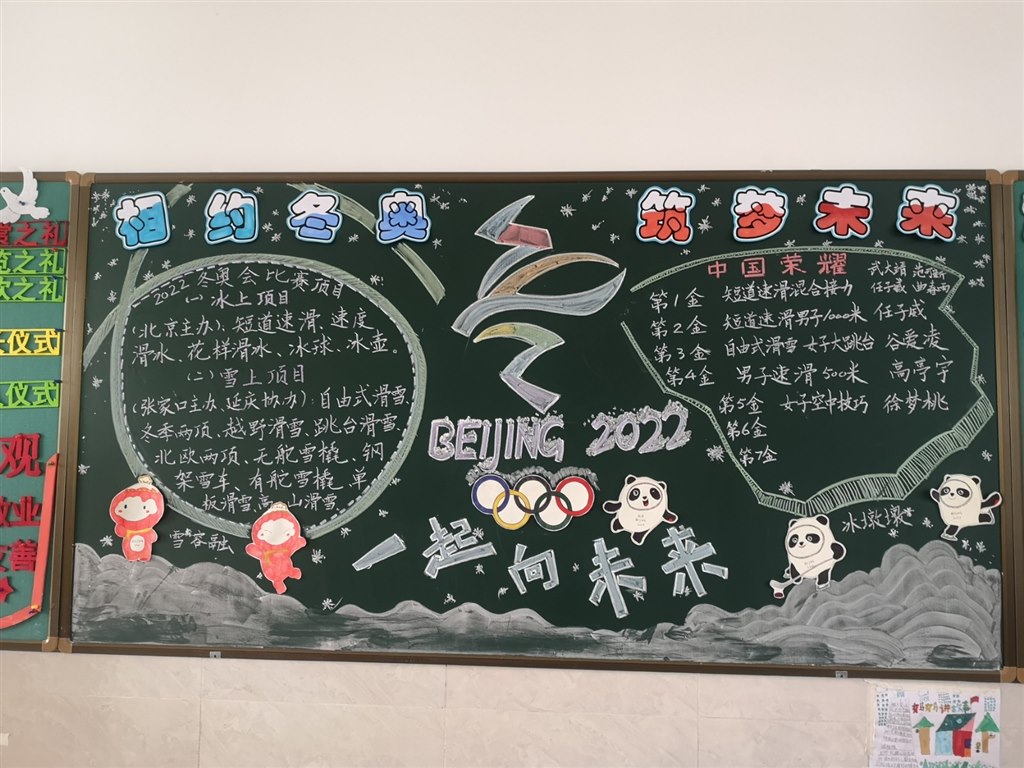 相约冬奥
筑梦未来
2022冬奥会比赛项目
(一)冰上项目
(北京主办):短道速滑、速度
滑冰、花样滑冰、冰球、冰壶。
(二)雪上项目
(张家口主办、延庆协办):自由式滑雪
冬季两项、越野滑雪、跳台滑雪、
北欧两项、无舵雪橇、钢
架雪车、有舵雪橇、单
板滑雪、高山滑雪
雪容融
BEIJING 2022
一起向未来
中国荣耀
武大靖 范可新
第1金 短道速滑混合接力 任子威 曲春雨
第2金 短道速滑男子1000米 任子威
第3金 自由式滑雪女子大跳台 谷爱凌
第4金 男子速滑500米 高亭宇
第5金 女子空中技巧 徐梦桃
第6金
第7金
冰墩墩
赏之礼
览之礼
饮之礼
仪式
仪式
观
业
善